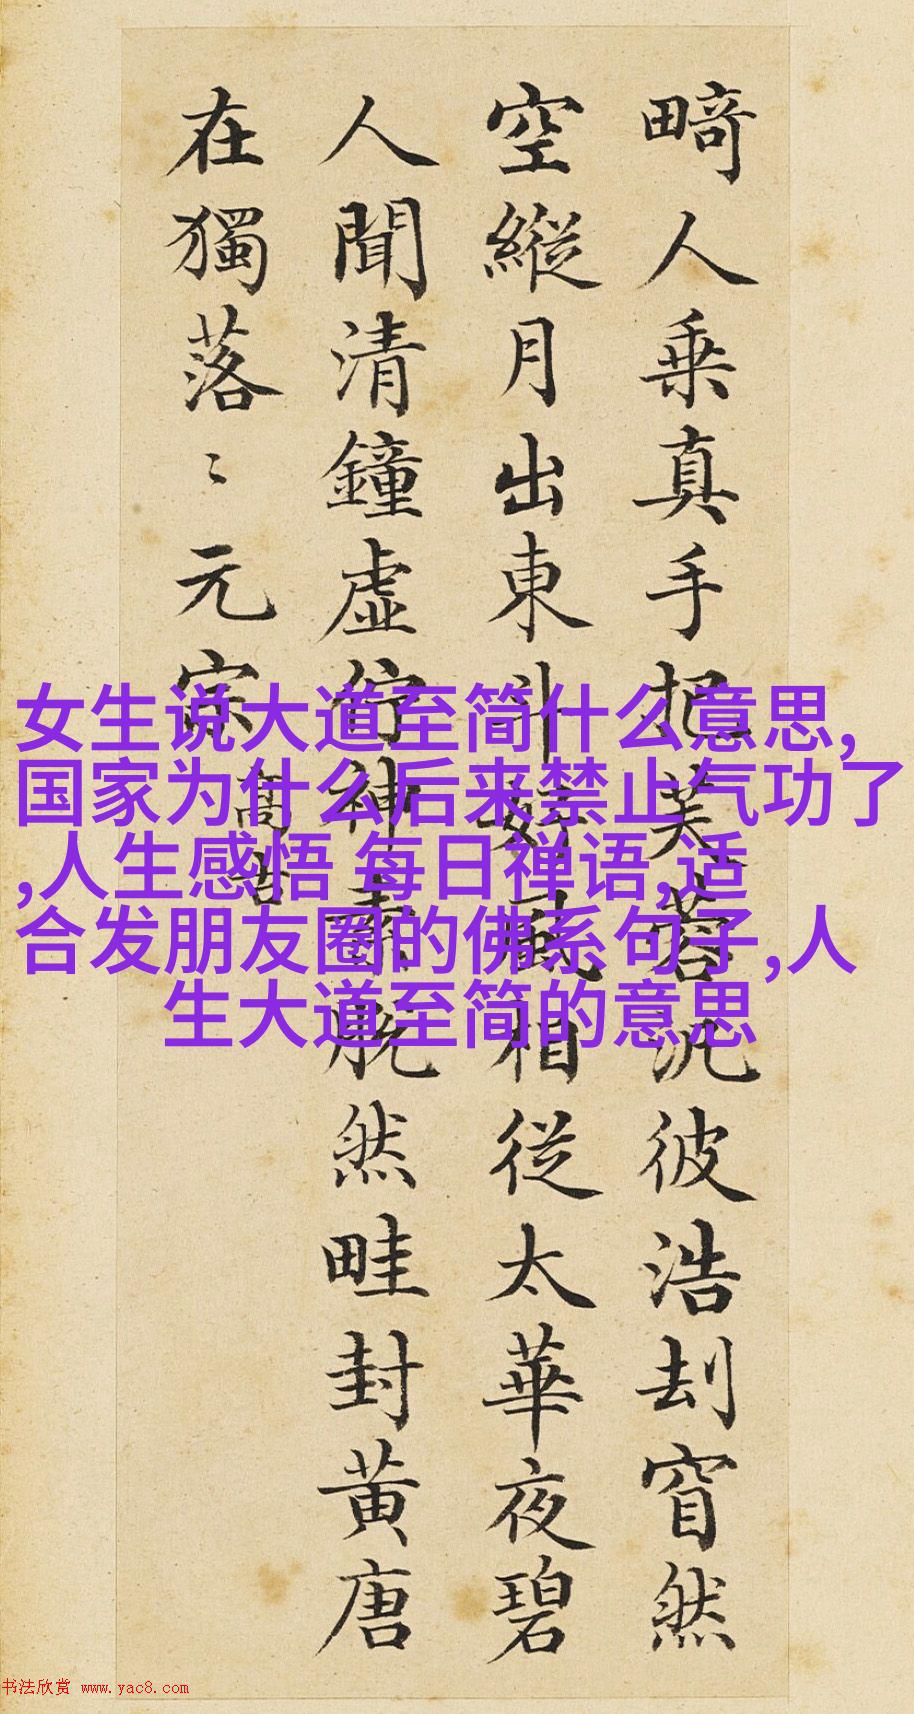 畸人乗真手把芙蓉汎彼浩刦窅然
空縱月出東斗好風相從太華夜碧
人聞清鐘虛佇神素脫然畦封黄唐
在獨落〻元宗
高古
女生说大道至简什么意思,
国家为什么后来禁止气功了
,人生感悟 每日禅语,适
合发朋友圈的佛系句子,人
生大道至简的意思
书法欣赏 www.yac8.com